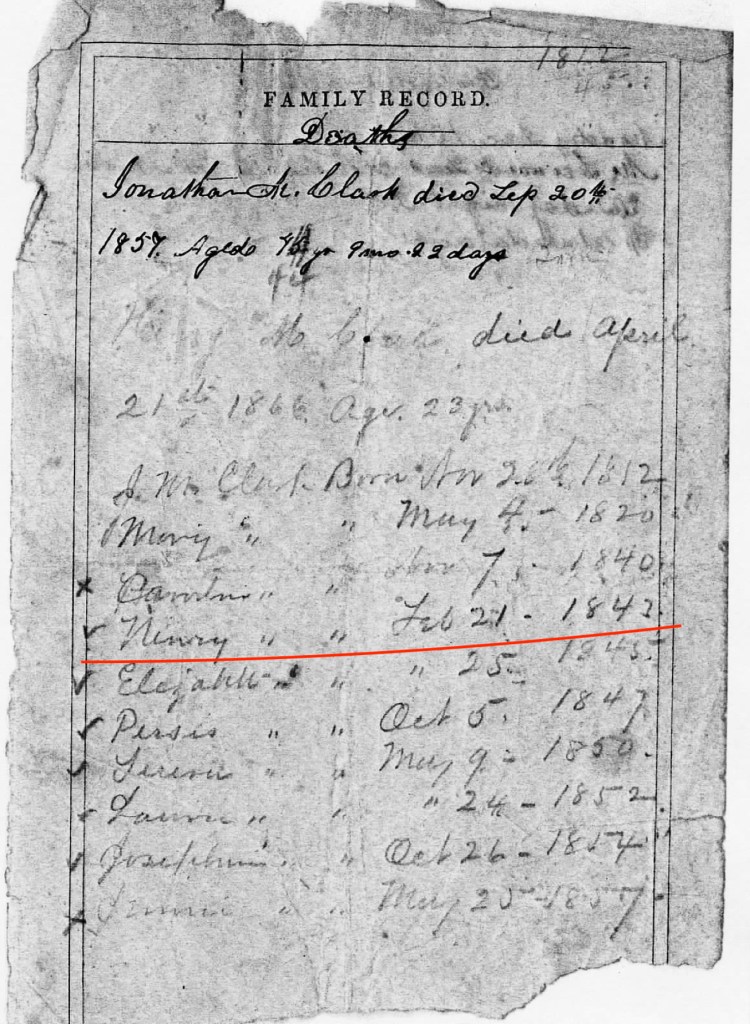 1812
45
FAMILY RECORD.
Deaths
Jonathan M. Clark died Sep 20th
1857. Aged yr 9mo. 22 days
44
Henry M Clark died April
21st 1866 Age. 23 yrs
J. M. Clark Born Nov 28th 1812
Mary " " May 4 - 1820
Caroline " " Nov 7 - 1840
Henry " " Feb 21 - 1843
Elizabeth " " " 25 - 1845
Persis " " Oct 5. 1847
Teresa " " May 9 - 1850.
Laura " " " 24 - 1852
Josephine " " Oct 26 - 1854
Jennie " " May 25 - 1857